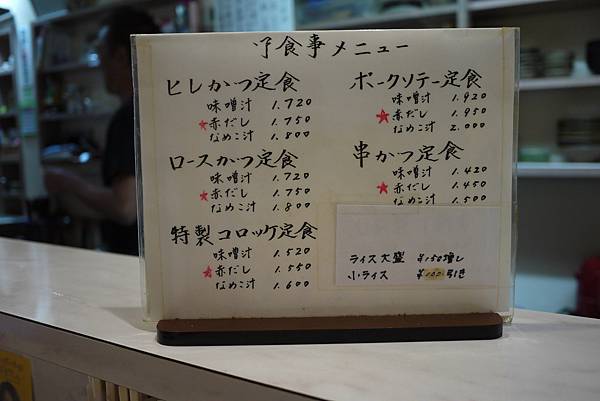 お食事メニュー
ヒレかつ定食
味噌汁 1.720
★赤だし 1.750
なめこ汁 1.800
ロースかつ定食
味噌汁 1.720
★赤だし 1.750
なめこ汁 1.800
特製コロッケ定食
味噌汁 1.520
★赤だし 1.550
なめこ汁 1.600
ポークソテー定食
味噌汁 1.920
★赤だし 1.950
なめこ汁 2.000
串かつ定食
味噌汁 1.420
★赤だし 1.450
なめこ汁 1.500
ライス大盛 ¥150増し
小ライス ¥100引き